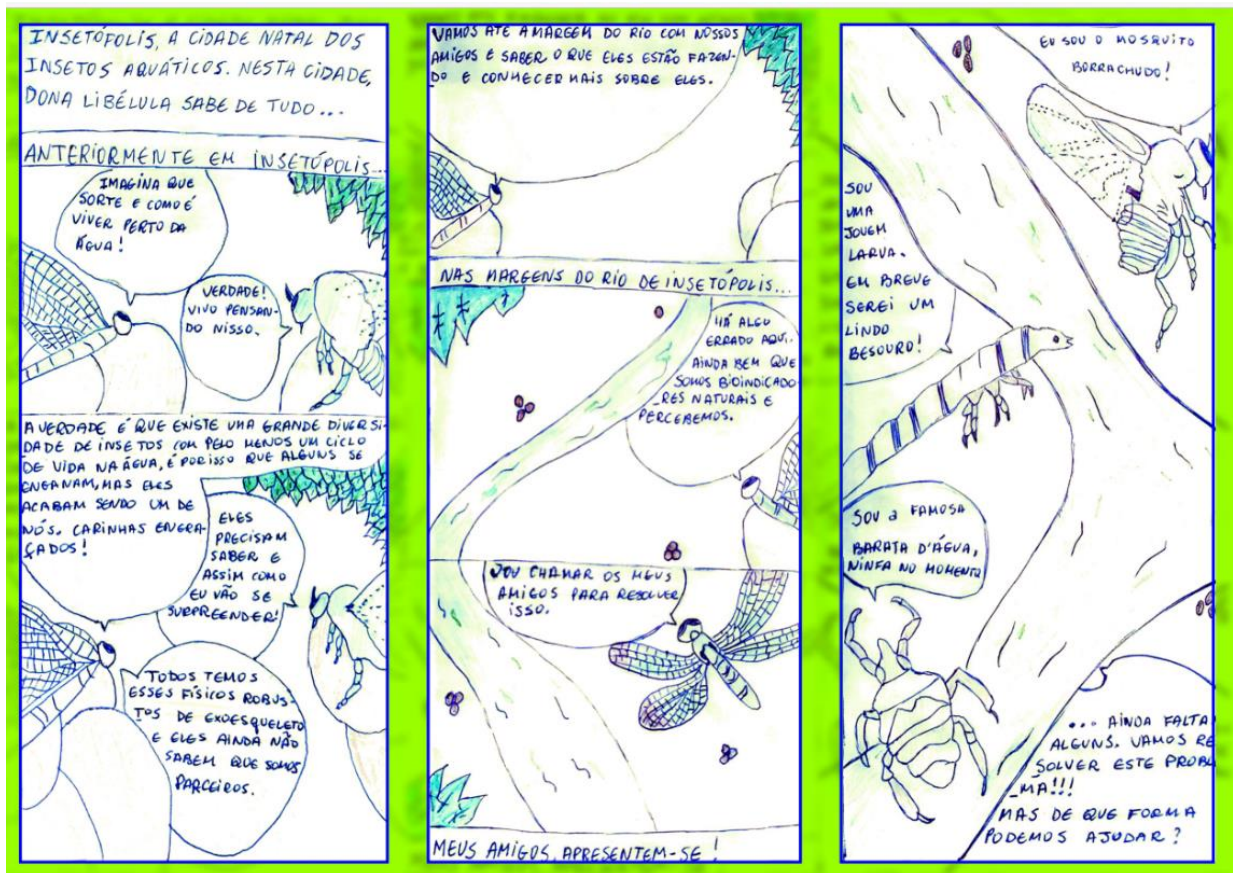 INSETÓPOLIS, A CIDADE NATAL DOS
INSETOS AQUÁTICOS. NESTA CIDADE,
DONA LIBÉLULA SABE DE TUDO...
ANTERIORMENTE EM INSETÓPOLIS...
IMAGINA QUE
SORTE E COMO É
VIVER PERTO DA
ÁGUA!
VERDADE!
VIVO PENSAN-
DO NISSO.
A VERDADE É QUE EXISTE UMA GRANDE DIVERSI-
DADE DE INSETOS COM PELO MENOS UM CICLO
DE VIDA NA ÁGUA, É POR ISSO QUE ALGUNS SE
ENGANAM, MAS ELES
ACABAM SENDO UM DE
NÓS. CARINHAS ENGRA-
ÇADOS!
ELES
PRECISAM
SABER E
ASSIM COMO
EU VÃO SE
SURPREENDER!
TODOS TEMOS
ESSES FÍSICOS ROBUS-
TOS DE EXOESQUELETO
E ELES AINDA NÃO
SABEM QUE SOMOS
PARCEIROS.
VAMOS ATÉ A MARGEM DO RIO COM NOSSOS
AMIGOS E SABER O QUE ELES ESTÃO FAZEN-
DO E CONHECER MAIS SOBRE ELES.
NAS MARGENS DO RIO DE INSETÓPOLIS...
HÁ ALGO
ERRADO AQUI.
AINDA BEM QUE
SOMOS BIOINDICADO
RES NATURAIS E
PERCEBEMOS.
VOU CHAMAR OS MEUS
AMIGOS PARA RESOLVER
ISSO.
MEUS AMIGOS, APRESENTEM-SE!
EU SOU O MOSQUITO
BORRACHUDO!
SOU
UMA
JOVEM
LARVA.
EM BREVE
SEREI UM
LINDO
BESOURO!
SOU a FAMOSA
BARATA D'ÁGUA,
NINFA NO MOMENTO
... AINDA FALTA
ALGUNS. VAMOS RE
SOLVER ESTE PROBL
_MA!!!
MAS DE QUE FORMA
PODEMOS AJUDAR?